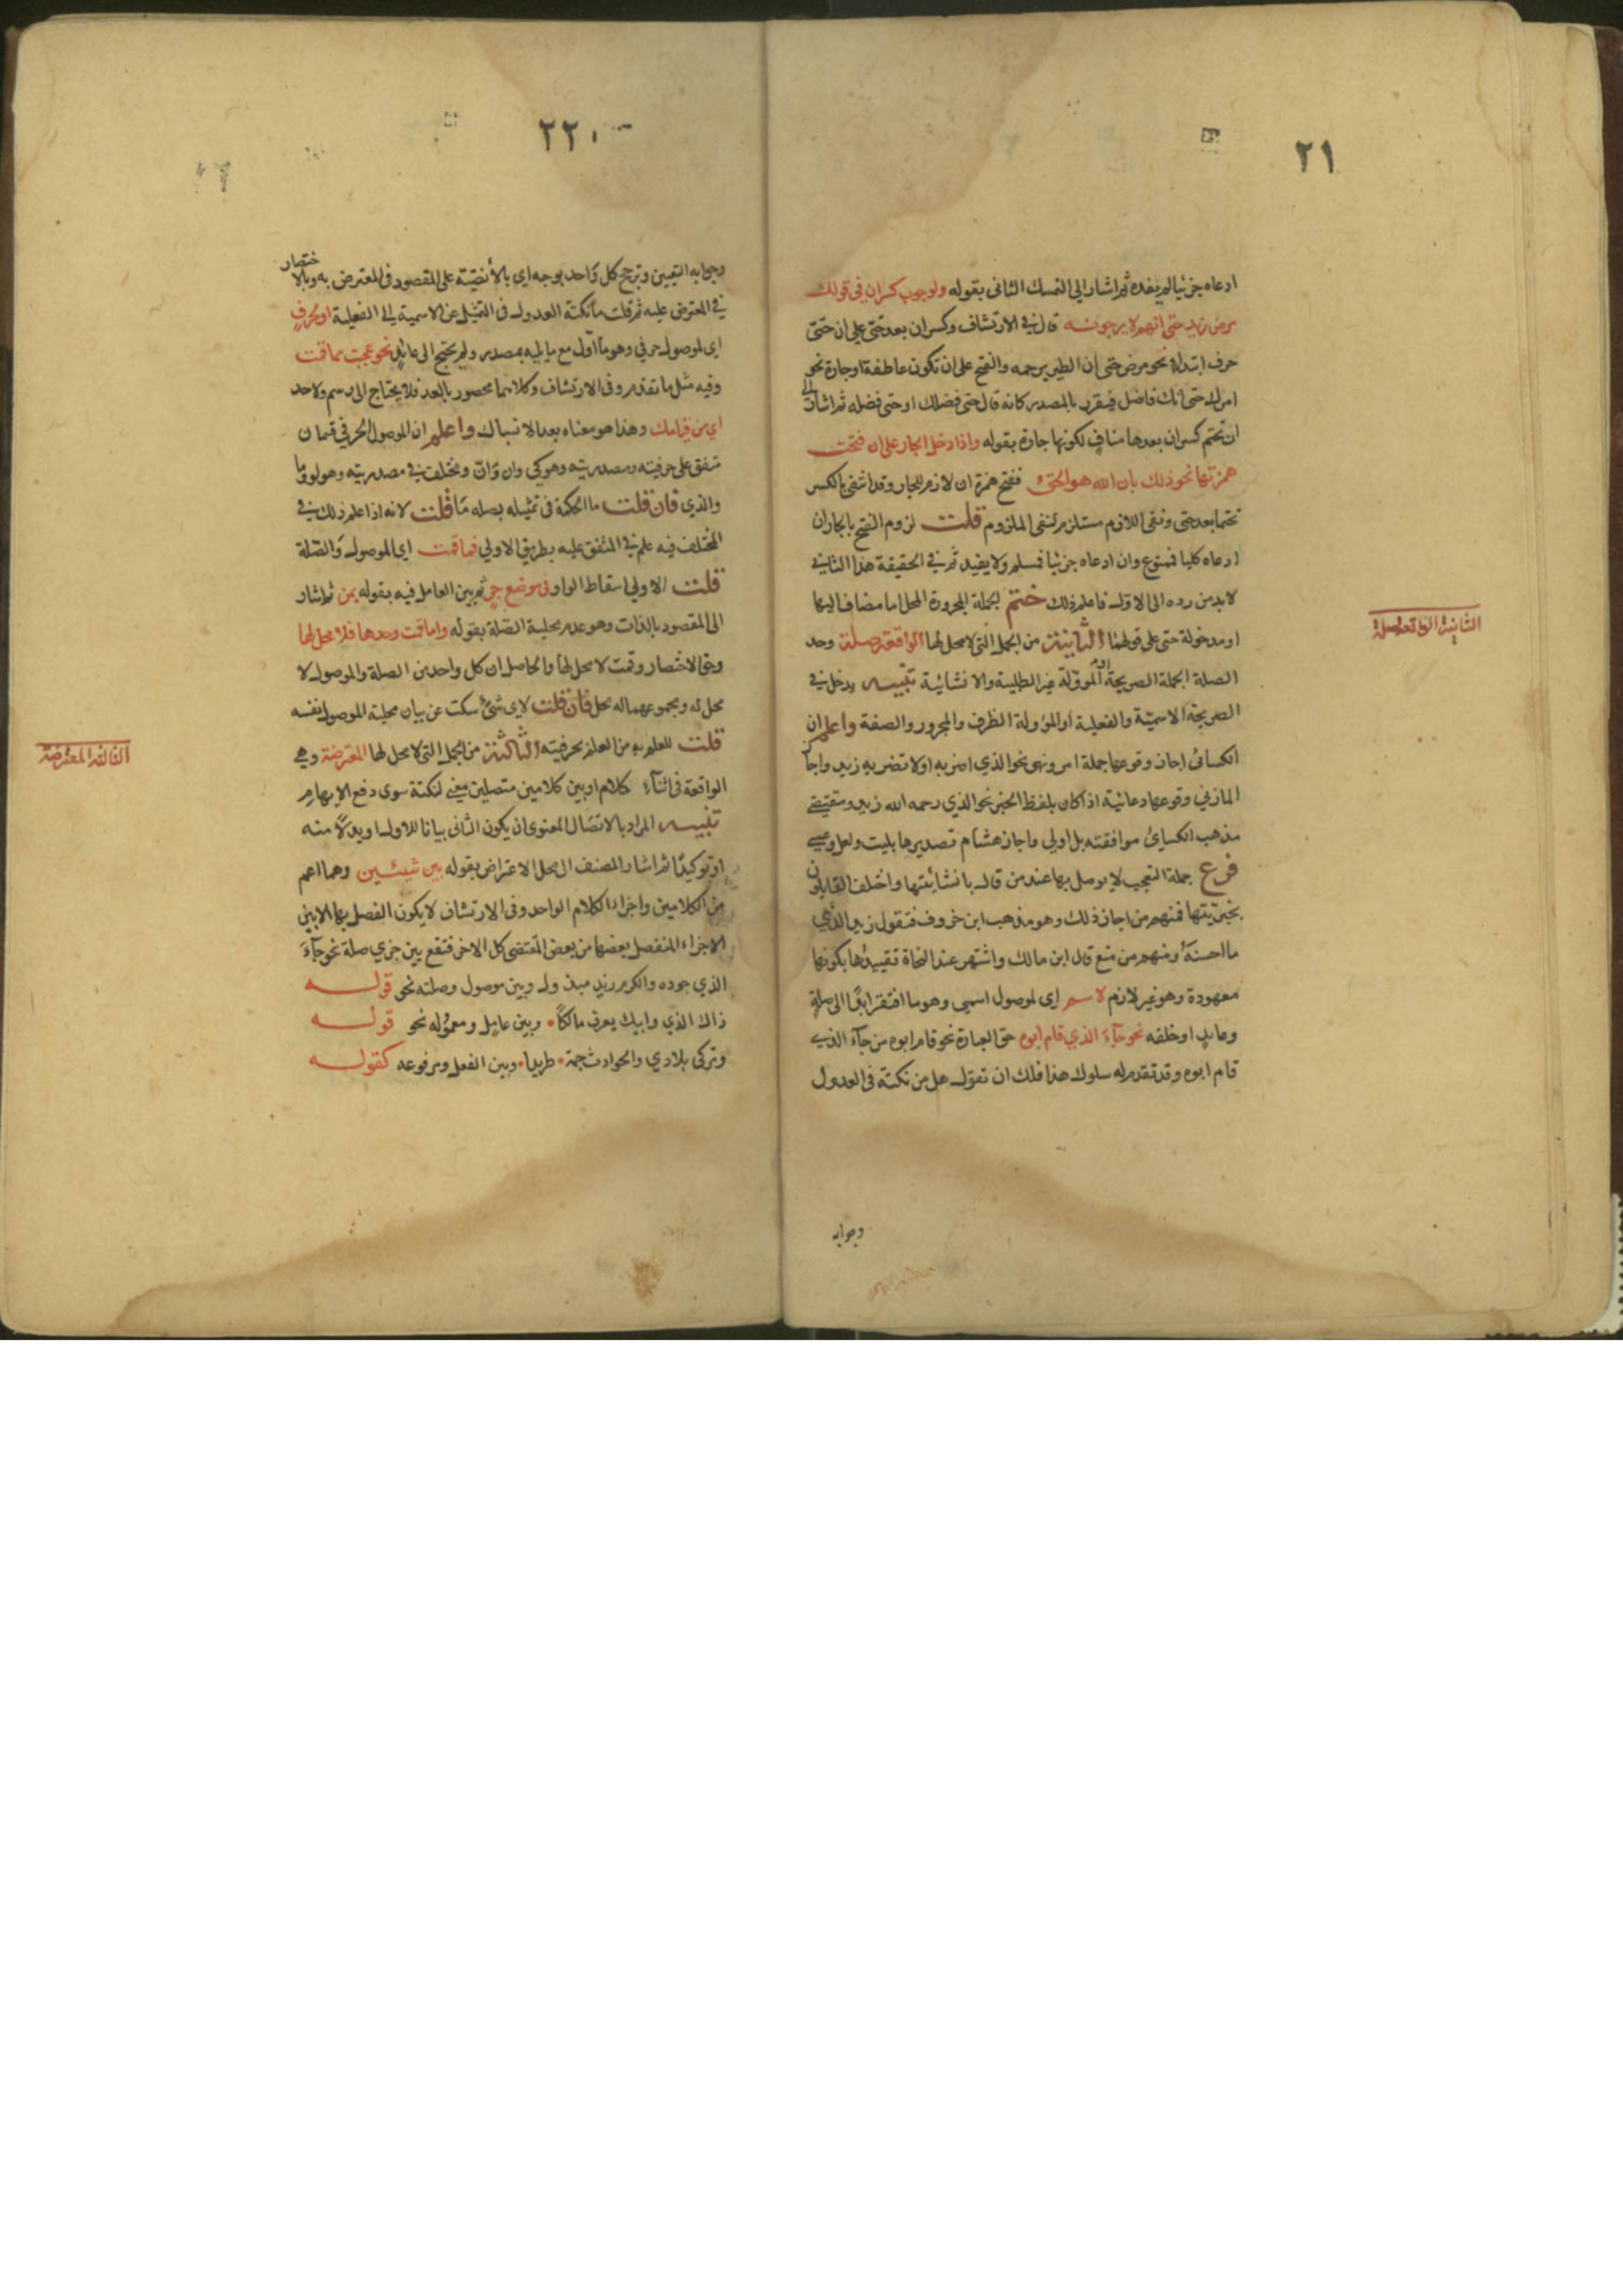 ٢١
ادعاه جزئيا لم يفده ثم اشار الى التمسك الثانى بقوله ولوجوب كسر ان فى قولك
مرض زيد حتى انهم لا يرجونه قال فى الارتشاف وكسر ان بعد حتى على ان حتى
حرف ابتداء نحو مرض حتى ان الطير يرحمه والفتح على ان تكون عاطفة او جارة نحو
امرك حتى انك فاضل فيقرر بالمصدر كانه قال حتى فضلك او حتى فضله ثم اشار الى
ان تحتم كسر ان بعدها مناف لكونها جارة بقوله واذا دخل الجار على ان فتحت
همزتها نحو ذلك بان الله هو الحق ففتح همزة ان لازم للجار وقد انتفى بالكسر
تحتما بعد حتى ونفى اللازم مستلزم لنفى الملزوم قلت لزوم الفتح بالجار ان
ادعاه كليا فممنوع وان ادعاه جزئيا فمسلم ولا يفيد ثم فى الحقيقة هذا الثانى
لا بد من رده الى الاول فاعلم ذلك ختم لجملة المجرورة المحل اما مضاف اليها
او مدخولة حتى على قولهما الثانية من الجمل التى لا محل لها الواقعة صلة وحد
الثانية الواقعة صلة
الصلة الجملة الصريحة او المؤولة غير الطلبية والانشائية تنبيه يدخل فى
الصريحة الاسمية والفعلية او المؤولة الظرف والمجرور والصفة واعلم ان
الكسائى اجاز وقوعها جملة امر ونهى نحو الذى اضربه او لا تضربه زيد واجاز
المازنى وقوعها دعائية اذا كان بلفظ الخبر نحو الذى رحمه الله زيد ومقتضى
مذهب الكسائ موافقته بل اولى واجاز هشام تصديرها بليت ولعل وعسى
فرع جملة التعجب لا يوصل بها عند من قال بانشائيتها واختلف القايلون
بخبريتها فمنهم من اجاز ذلك وهو مذهب ابن خروف فتقول زيد الذى
ما احسنه ومنهم من منع قال ابن مالك واشتهر عند النحاة تقييدها بكونها
معهودة وهو غير لازم لاسم اى لموصول اسمى وهو ما افتقر ابدا الى صلة
وعايد او خلفه نحو جاء الذى قام ابوه حق العبارة نحو قام ابوه من جاء الذى
قام ابوه وقد تقدم له سلوك هذا فلك ان تقول هل من نكتة فى العدول
وجوابه
٢٢٠
وجوابه التعيين وترجح كل واحد بوجه اى بالأنصية على المقصود فى المعترض به وبالاختصار
فى المعترض عليه ثم قلت ما نكتة العدول فى التمثيل عن الاسمية الى الفعلية او لحرف
اى لموصول حرفى وهو ما أول مع ما يليه بمصدر ولم يحتج الى عايد نحو عجبت مما قمت
وفيه مثل ما تقدم وفى الارتشاف وكلاهما محصور بالعد فلا يحتاج الى رسم ولا حد
اى من قيامك وهذا هو معناه بعد الانسباك واعلم ان الموصول الحرفى قسمان
متفق على حرفيته ومصدريته وهو كى وان وأن ومختلف فى مصدريته وهو لو وما
والذى فان قلت ما الحكمة فى تمثيله بصله ما قلت لانه اذا علم ذلك فى
المختلف فيه علم فى المتفق عليه بطريق الاولى فما قمت اى الموصول والصلة
قلت الاولى اسقاط الواو فى موضع جر ثم بين العامل فيه بقوله بمن ثم اشار
الى المقصود بالذات وهو عدم محلية الصلة بقوله واما قمت وحدها فلا محل لها
وحق الاختصار وقمت لا محل لها والحاصل ان كل واحد من الصلة والموصول لا
محل له ومجموعهما له محل فان قلت لاى شئ سكت عن بيان محلية الموصول نفسه
قلت للعلم به من العلم بحرفيته الثالثة من الجمل التى لا محل لها المعترضة وهى
الثالثة المعترضة
الواقعة فى اثناء كلام او بين كلامين متصلين معنى لنكتة سوى دفع الابهام
تنبيه المراد بالاتصال المعنوى ان يكون الثانى بيانا للاول او بدلا منه
او توكيدا ثم اشار المصنف الى محل الاعتراض بقوله بين شيئين وهما اعم
من الكلامين واجزاء الكلام الواحد وفى الارتشاف لا يكون الفصل بها الا بين
الاجزاء المنفصل بعضها من بعض المقتضى كل الاخر فتقع بين جزى صلة نحو جاء
الذى جوده والكرم زين مبذول وبين موصول وصلته نحو قوله
ذاك الذى وابيك يعرف مالكا • وبين عامل ومعموله نحو قوله
وتركى بلادى والحوادث جمة • طريدا • وبين الفعل ومرفوعه كقوله